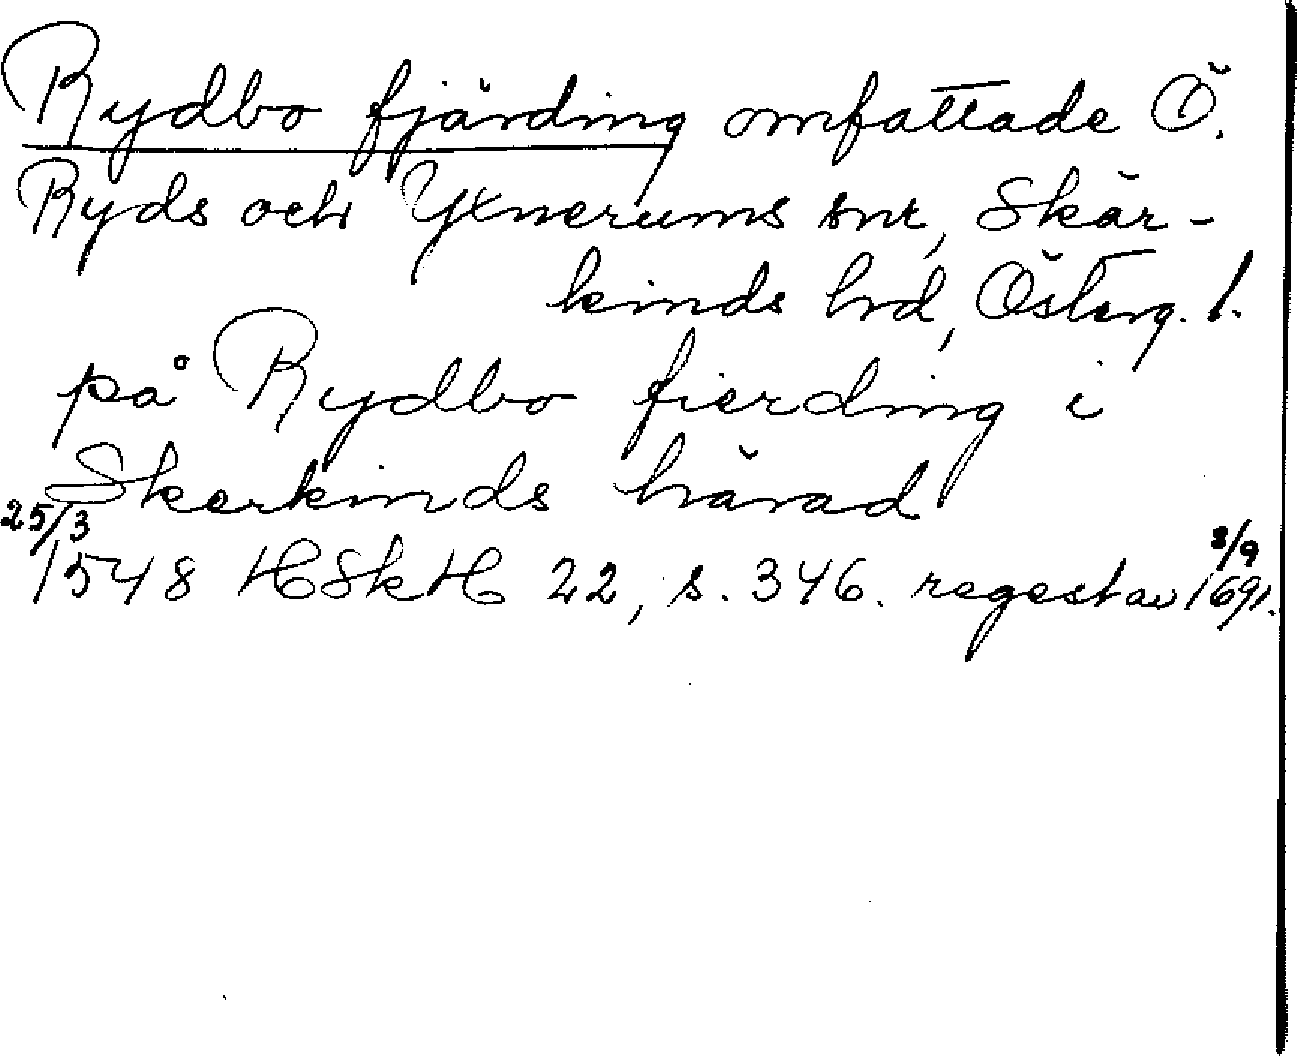 Rydbo fjärding omfattade Ö.
Ryds och Yxnerums snr, Skär-
kinds hrd, Österg. l.
på Rydbo fierding i
Skerkinds härad
25/3
1548 HSkH 22, s. 346. regest av 8/9 1691.